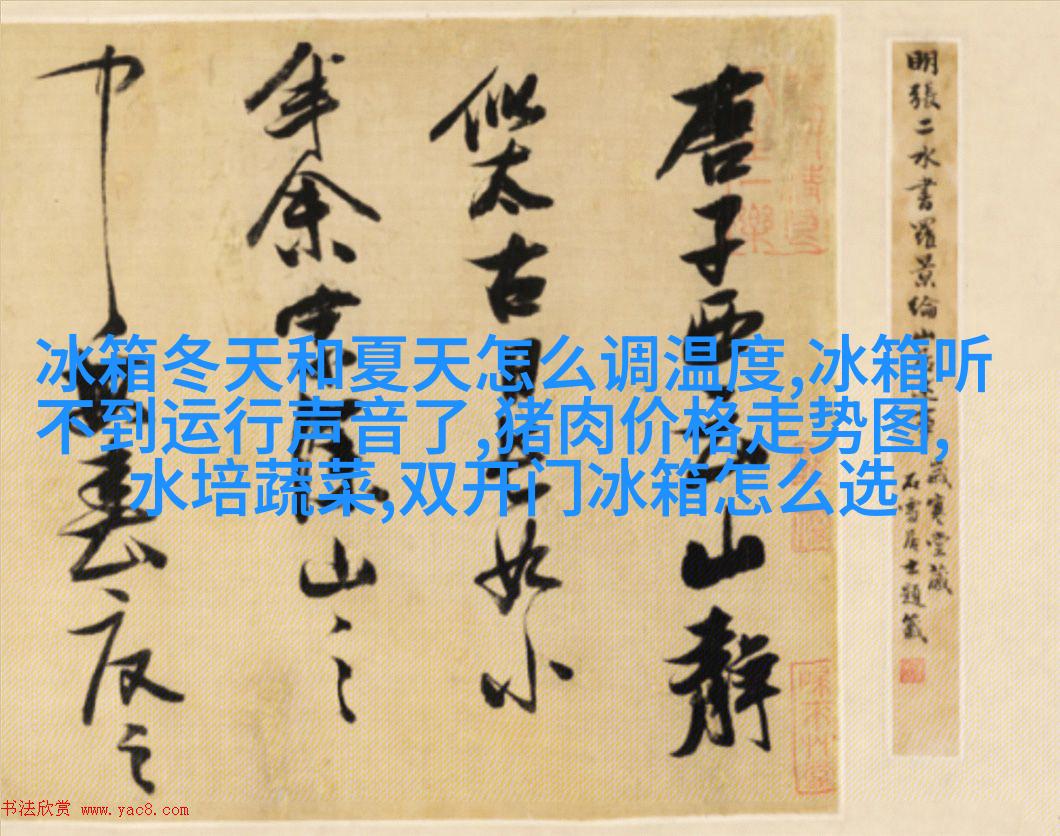 明張二水書羅景綸山
歲寒堂藏
石雪居士題籤
唐子西云山靜
似太古日長如小
年余家深山之
中每春夏之
冰箱冬天和夏天怎么调温度,冰箱听
不到运行声音了,猪肉价格走势图,
水培蔬菜,双开门冰箱怎么选
书法欣赏 www.yac8.com